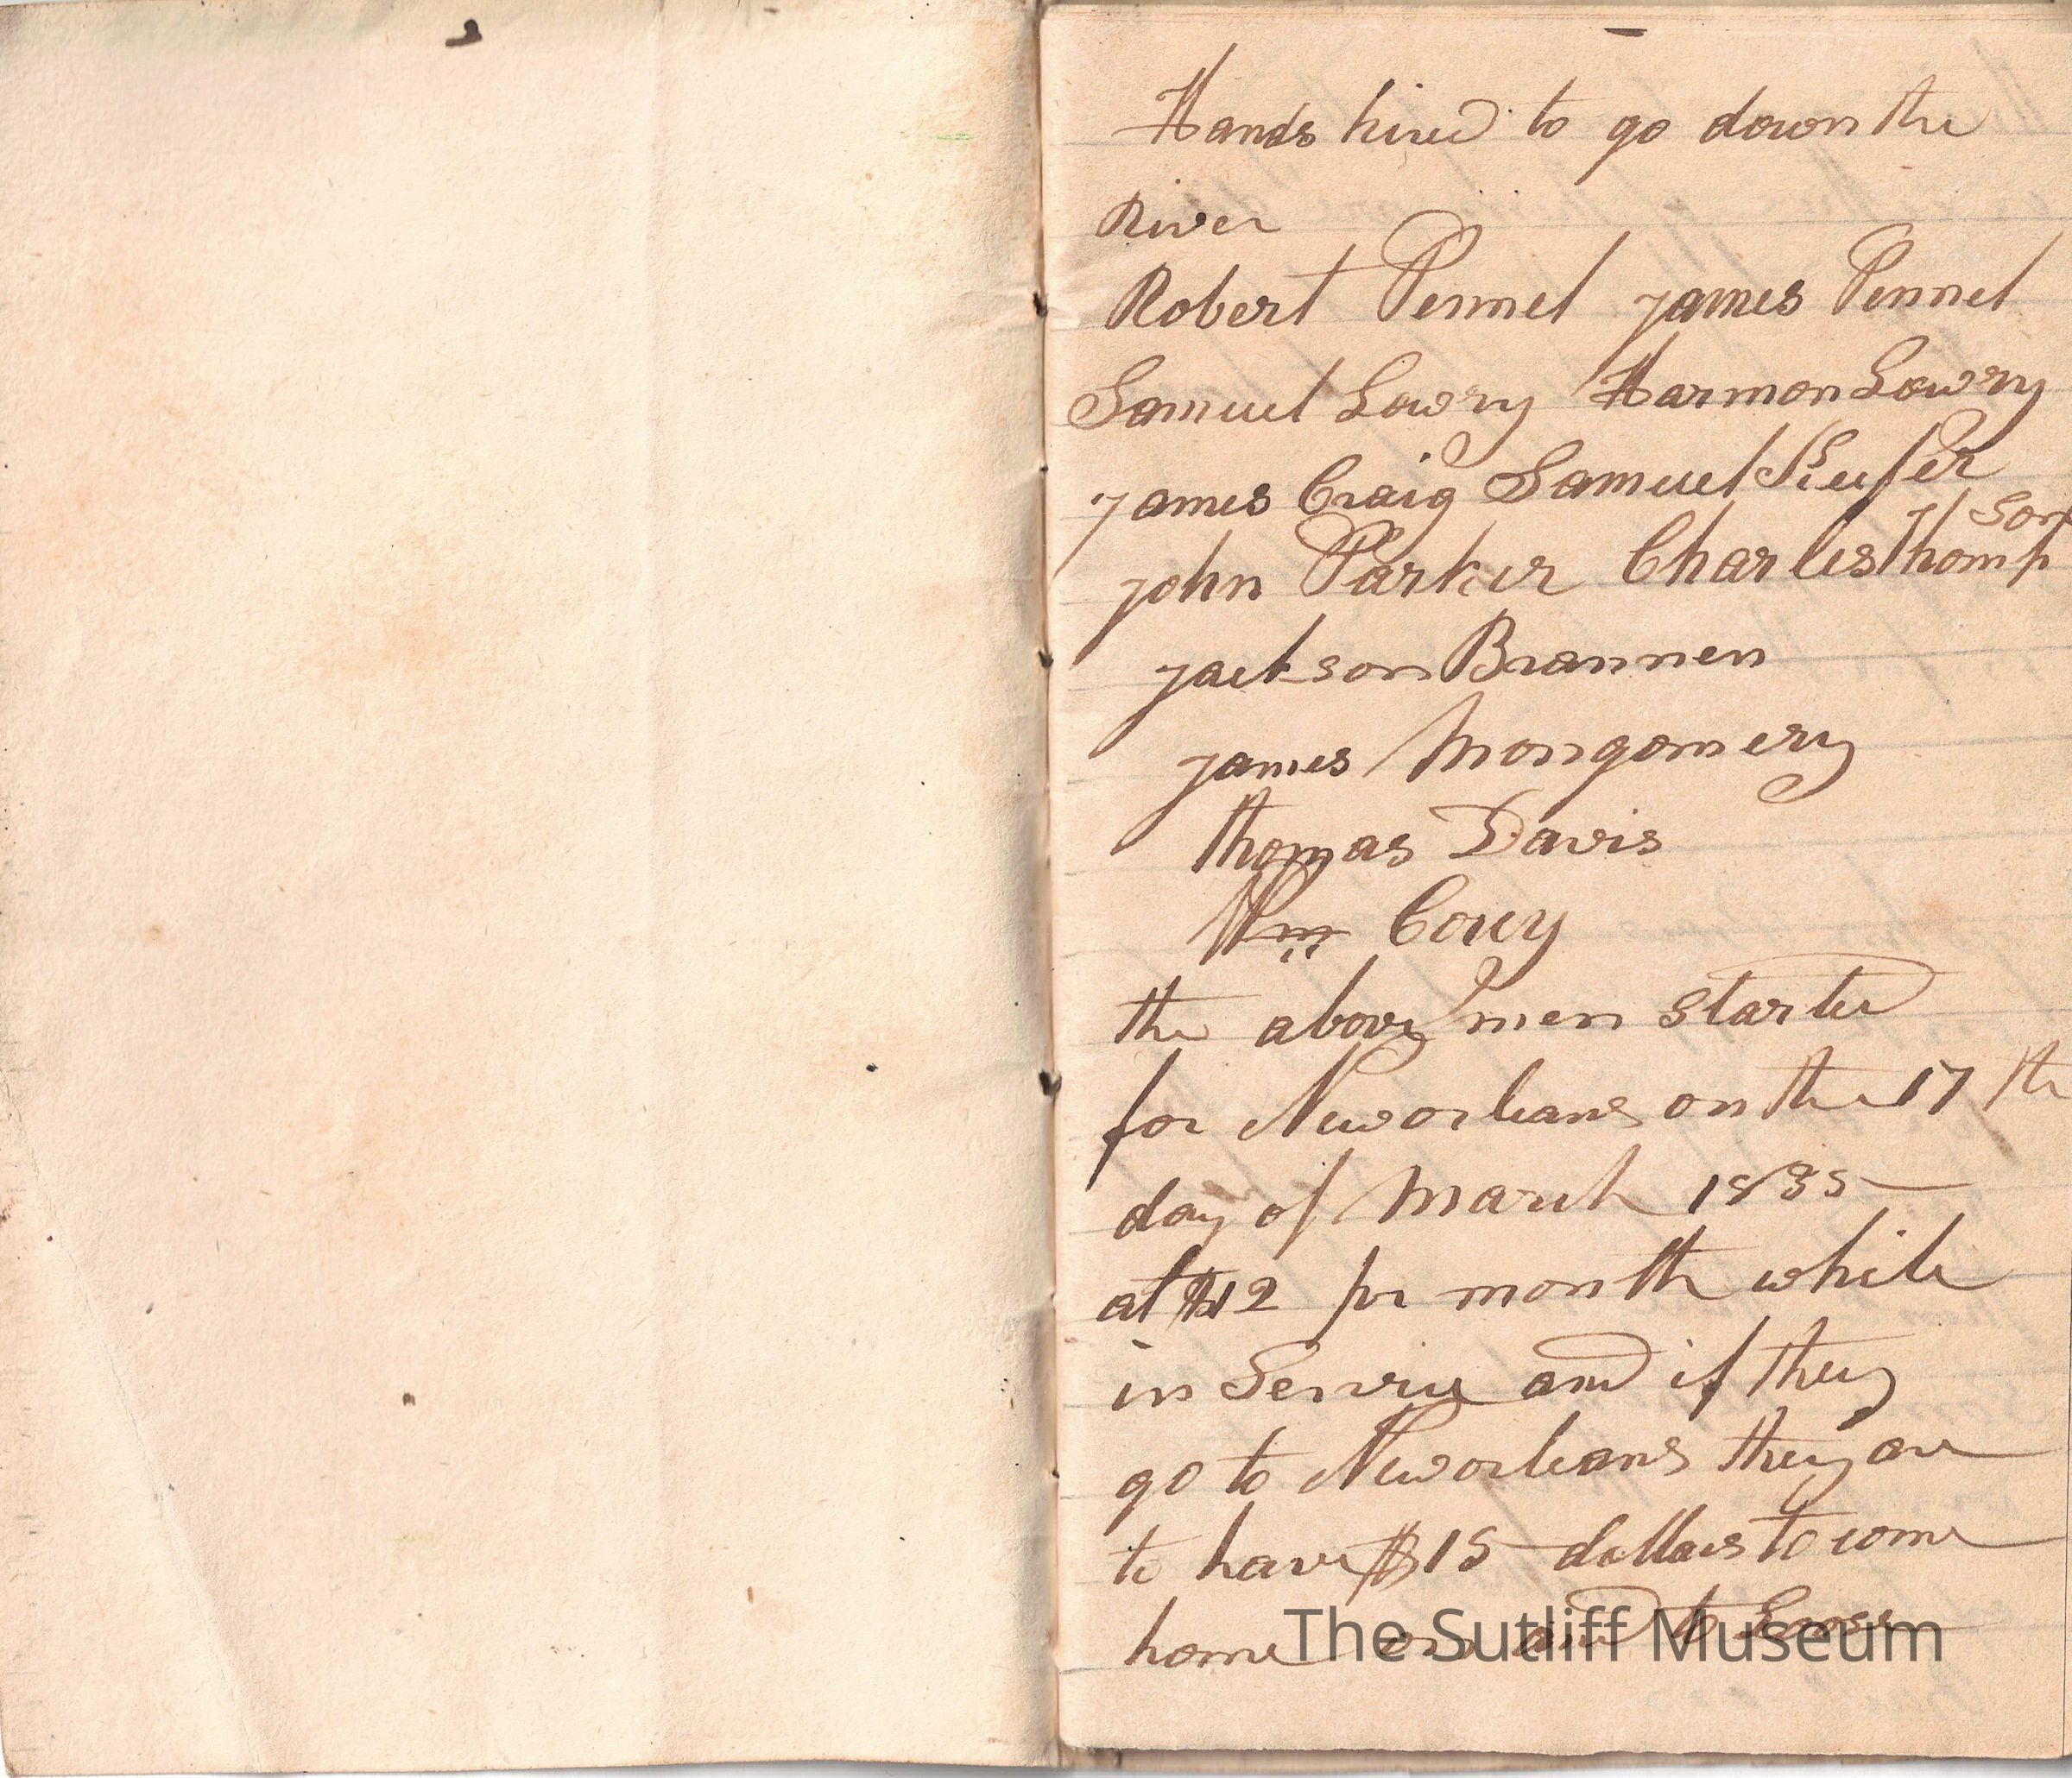 Hands hired to go down the
River
Robert Pennel James Pennel
Samuel Lowry Harmon Lowry
James Craig Samuel Kiefer
son
John Parker Charles Thomp
Jackson Brannen
James Mongomery
Thomas Davis
Wm Covey
the above men started
for Neworleans on the 17 th
day of March 1835
at $12 per month while
in Service and if they
go to Neworleans they are
to have $15 dollars to come
home on and to
The Sutliff Museum